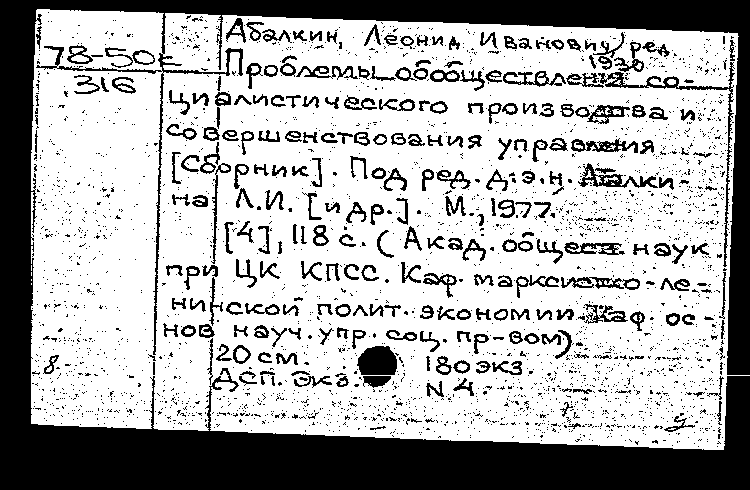 Абалкин, Леонид Иванович, ред.
1930
78-50е
316
Проблемы обобществления со-
циалистического производства и
совершенствования управления
[Сборник]. Под ред. д.э.н. Абалки-
на Л.И. [и др.]. М., 1977.
[4], 118 с. (Акад. обществ. наук
при ЦК КПСС. Каф. марксистко-ле-
нинской полит. экономии. Каф. ос-
нов науч. упр. соц. пр-вом).
20 см. 180 экз.
8
ДСП. Экз. N 4.